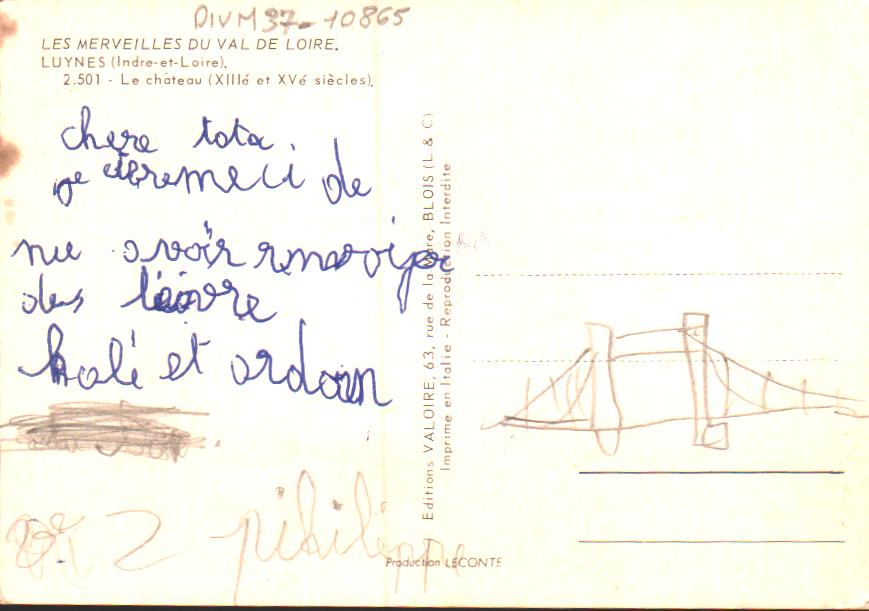 DIVM37-10865
LES MERVEILLES DU VAL DE LOIRE.
LUYNES (Indre-et-Loire).
2.501 - Le château (XIIIé et XVé siècles).
chere tota
je remeci de
mu avoir
des livre
et ardoin
pihilippe
Editions VALOIRE, 63, rue de la Mare, BLOIS (L & C)
Imprime en Italie - Reproduction Interdite
Production LECONTE